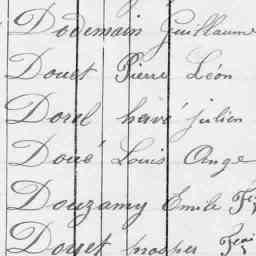 Dodemain Guillaume
Douet Pierre Léon
Dorel hervé julien
Doué Louis Ange
Douzamy Emile
Douet prosper